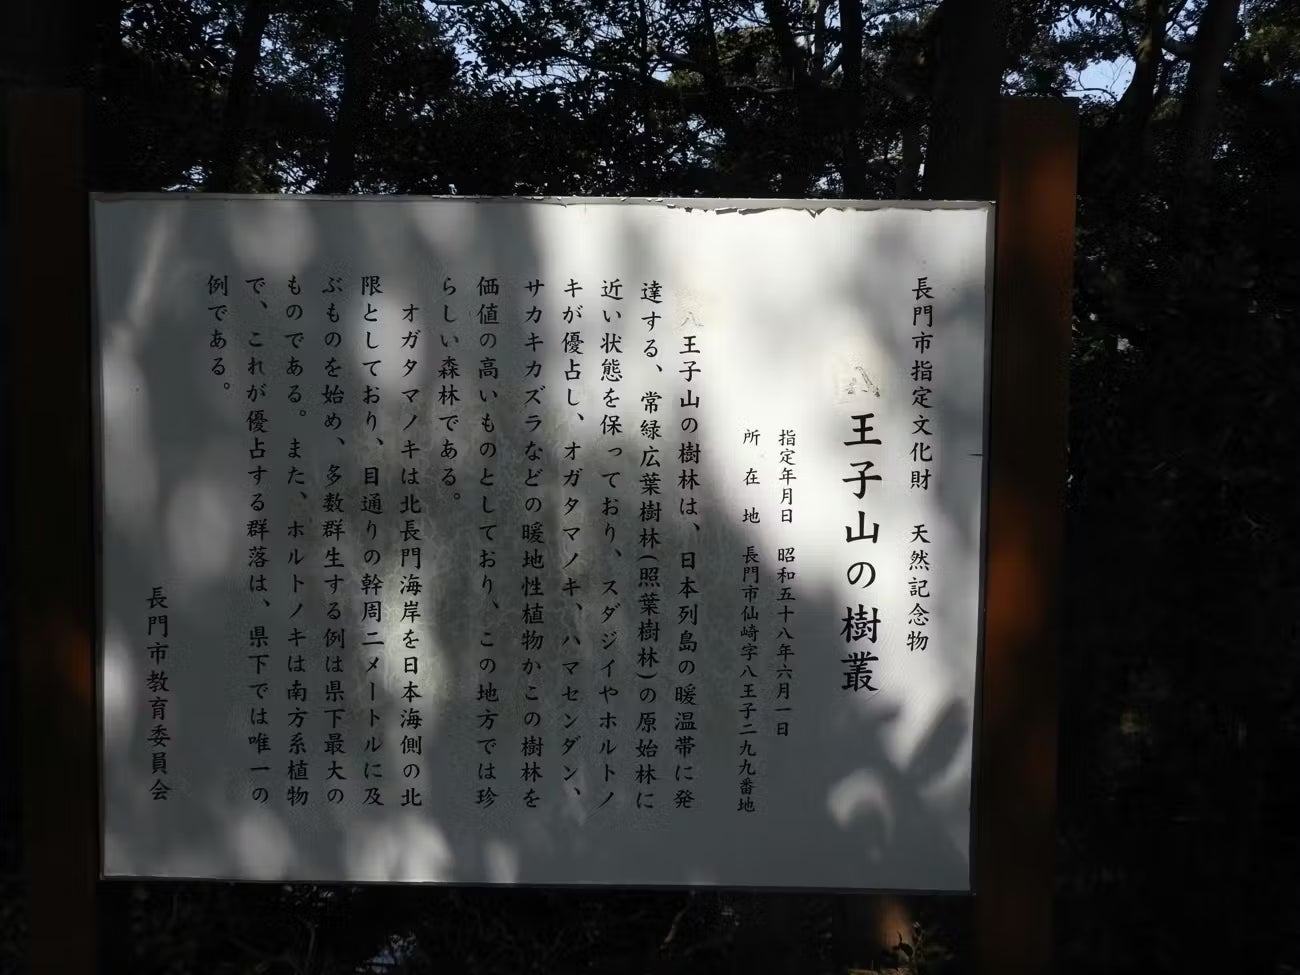 長門市指定文化財　天然記念物
八王子山の樹叢
指定年月日　昭和五十八年六月一日
所在地　長門市仙崎字八王子二九九番地
八王子山の樹林は、日本列島の暖温帯に発
達する、常緑広葉樹林(照葉樹林)の原始林に
近い状態を保っており、スダジイやホルトノ
キが優占し、オガタマノキ、ハマセンダン、
サカキカズラなどの暖地性植物かこの樹林を
価値の高いものとしており、この地方では珍
らしい森林である。
オガタマノキは北長門海岸を日本海側の北
限としており、目通りの幹周二メートルに及
ぶものを始め、多数群生する例は県下最大の
ものである。また、ホルトノキは南方系植物
で、これが優占する群落は、県下では唯一の
例である。
長門市教育委員会